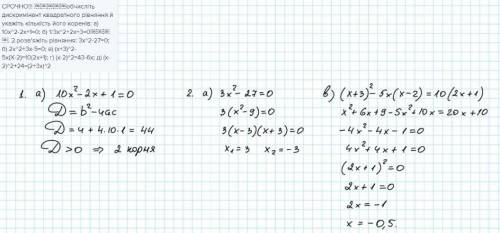 СРОЧНО!! обчисліть
дискримінант квадратного рівняння й
укажіть кількість його коренів: а)
10x^2-2x+1=0; б)
2.розв'яжіть рівняння: 3x^2-27=0;
б) 2x^2+3x-5=0; в) (x+3)^2-
5x(X-2)=10(2x+1); г) (x-2)^2=43-6x; д) (x-
2)^2+24=(2+3x)^2
1. а) 10x²-2x+1=0
D=b²-4ac
D=4+4·10·1=44
D>0 ⇒ 2 корня
2. а) 3x²-27=0
3(x²-9)=0
3(x-3)(x+3)=0
x₁=3 x₂=-3
в) (x+3)²-5x(x-2)=10(2x+1)
x²+6x+9-5x²+10x=20x+10
-4x²-4x-1=0
4x²+4x+1=0
(2x+1)²=0
2x+1=0
2x=-1
x=-0,5.